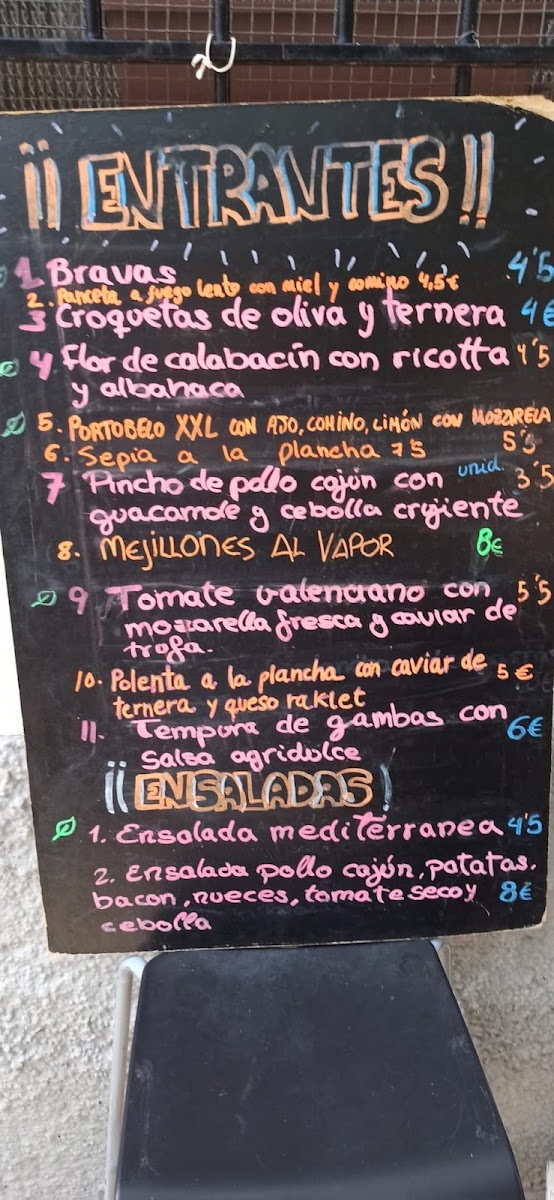 ¡¡ENTRANTES!!
1 Bravas 4'5
2. Panceta a fuego lento con miel y comino 4,5€
3 Croquetas de oliva y ternera 4€
4 Flor de calabacín con ricotta 4'5
y albahaca
5. PORTOBELO XXL CON AJO, COMINO, LIMÓN CON MOZZARELA
5'5
6. Sepia a la plancha 7'5
7 Pincho de pollo cajún con unid. 3'5
guacamole y cebolla crujiente
8. MEJILLONES AL VAPOR 8€
9 Tomate valenciano con 5'5
mozzarella fresca y caviar de
trufa.
10. Polenta a la plancha con caviar de 5€
ternera y queso raklet
11. Tempura de gambas con 6€
Salsa agridulce
¡¡ENSALADAS!
1. Ensalada mediterranea 4'5
2. Ensalada pollo cajún, patatas,
bacon, nueces, tomate seco y 8€
cebolla